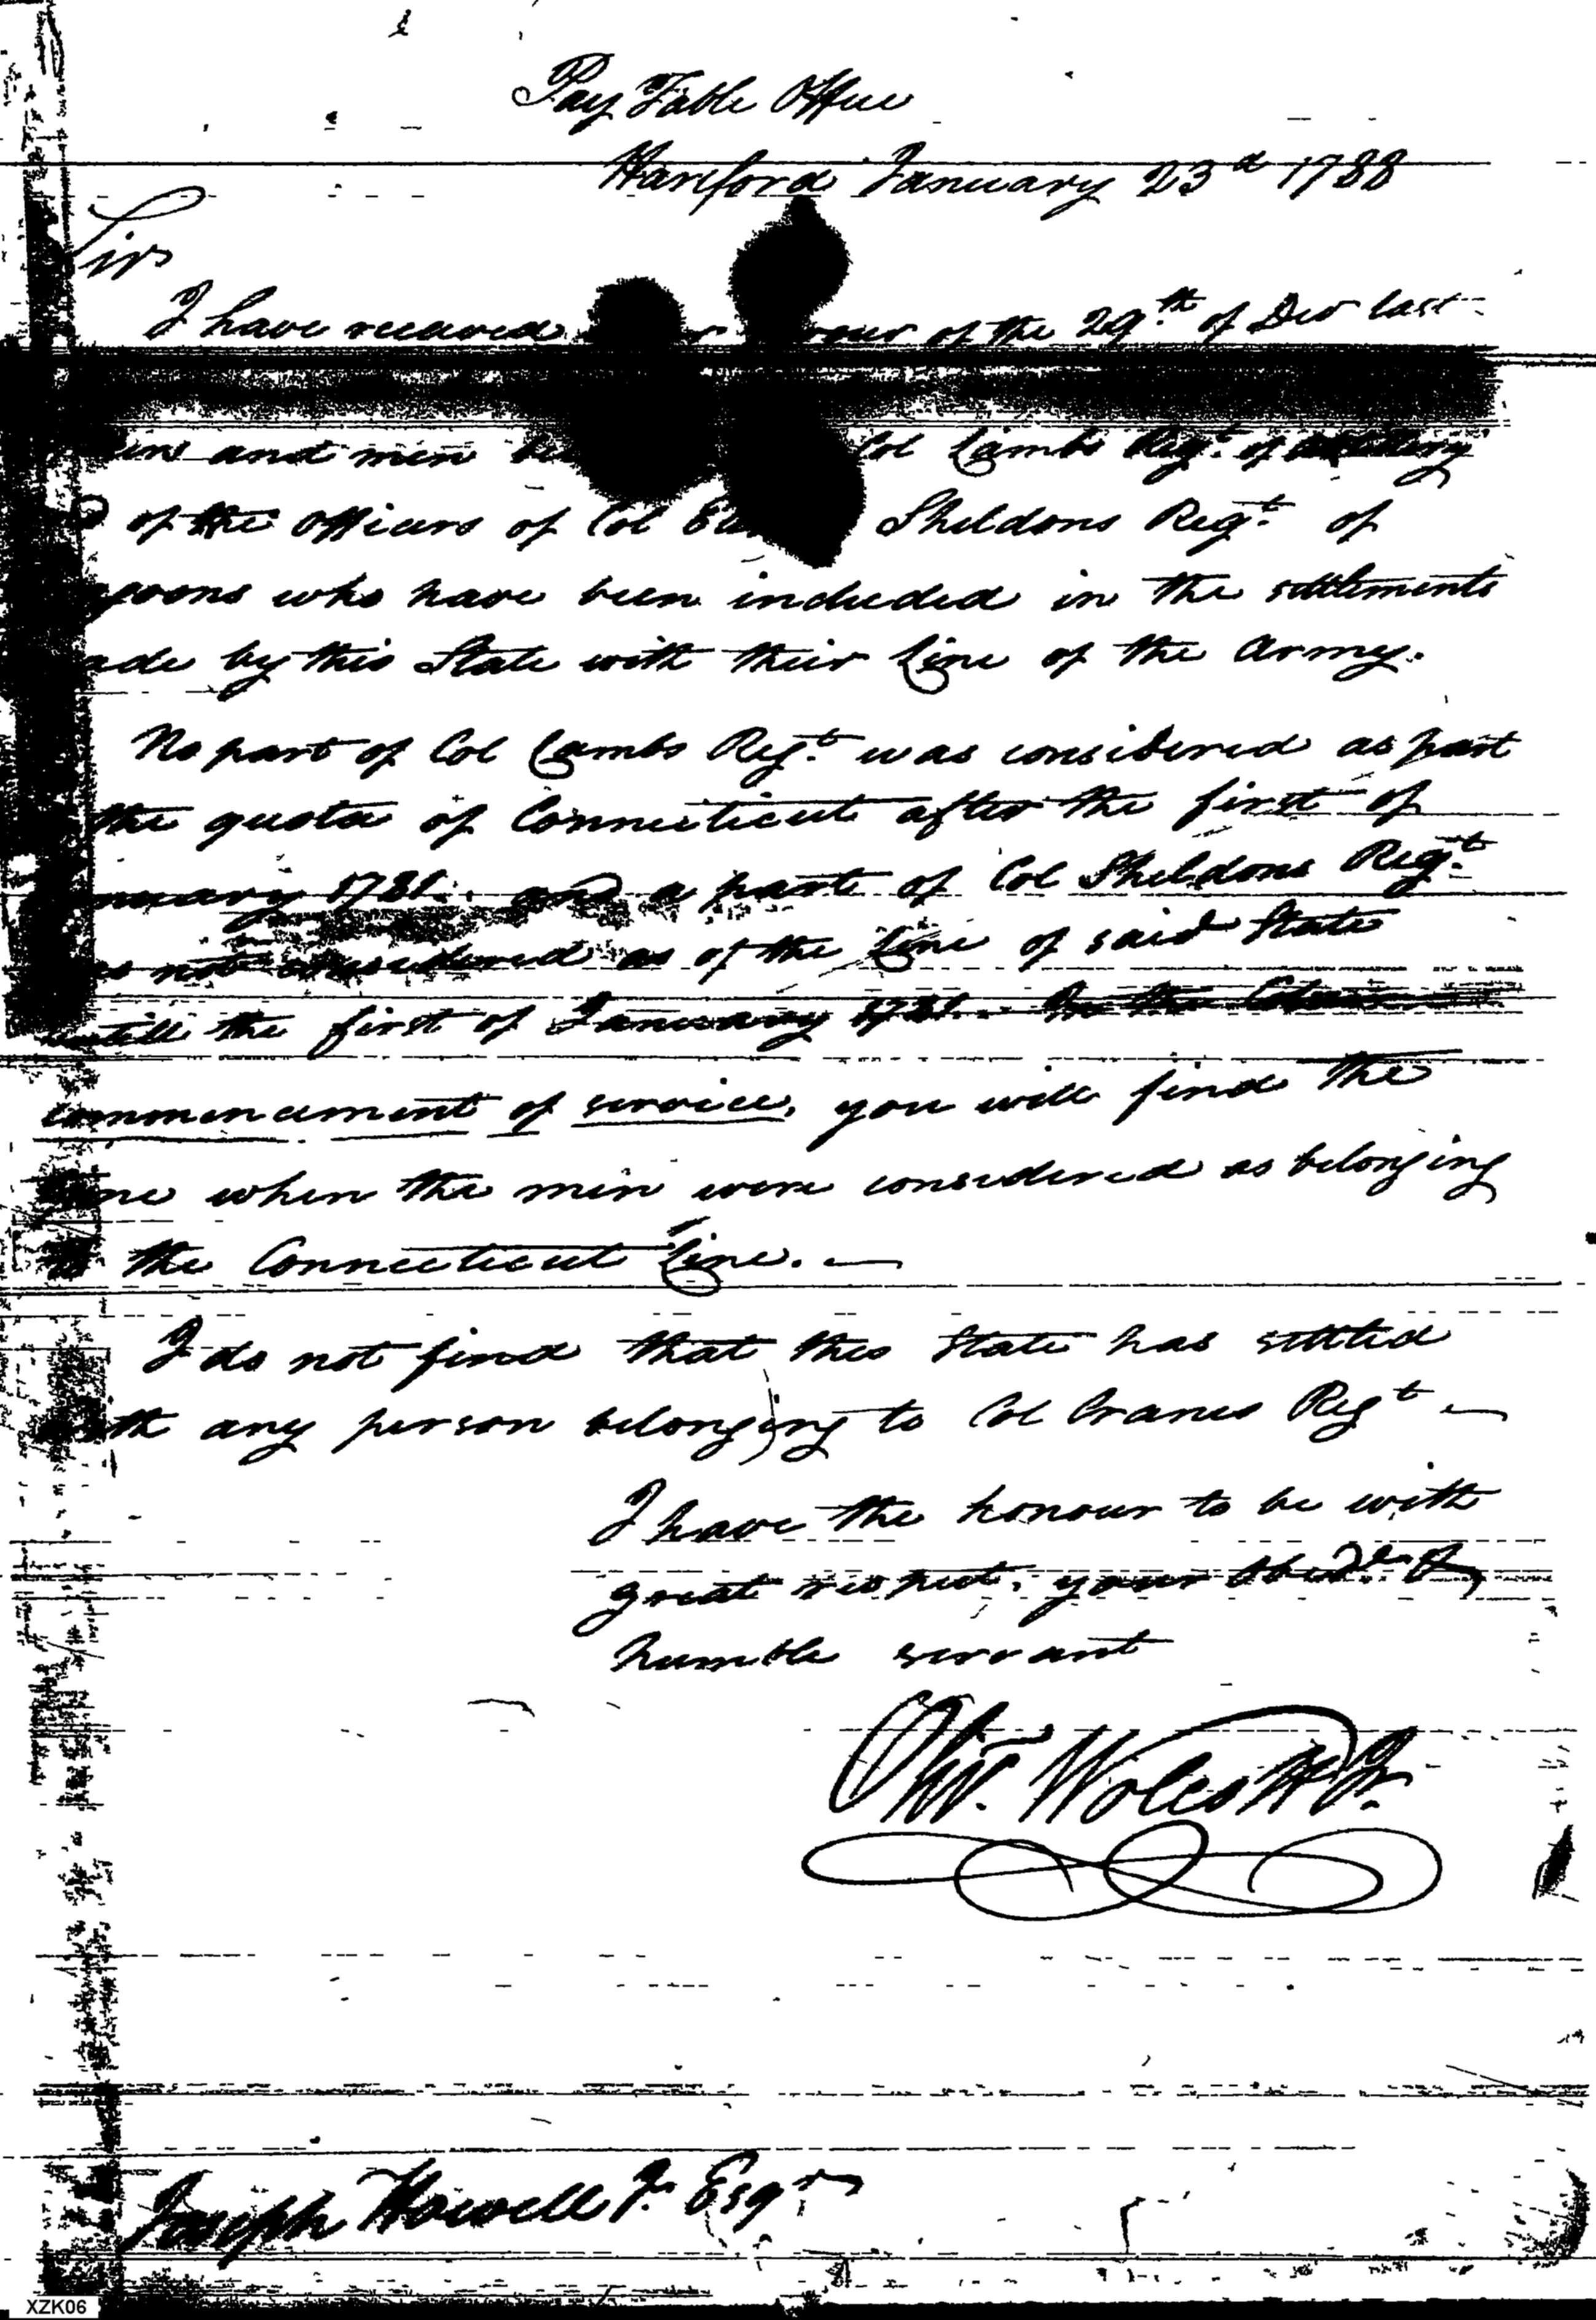 Pay Table Office
Hartford January 23d 1788
Sir
I have received of the 29th of Decr last
and men Col Lambs Regt. of
of the Officers of Col Sheldons Regt. of
who have been included in the settlements
by this State with their Line of the Army.
No part of Col Lambs Regt. was considered as part
the quota of Connecticut after the first of
1781. and a part of Col Sheldons Regt.
not considered as of the Line of said State
untill the first of January 1781. In the Column
commencement of service, you will find the
when the men were considered as belonging
to the Connecticut Line. —
I do not find that this State has settled
with any person belonging to Col Cranes Regt —
I have the honour to be with
great respect, your Obedt. &
humble servant
Oliv. Wolcott Jr.
Joseph Howell Jr. Esqr
XZK06